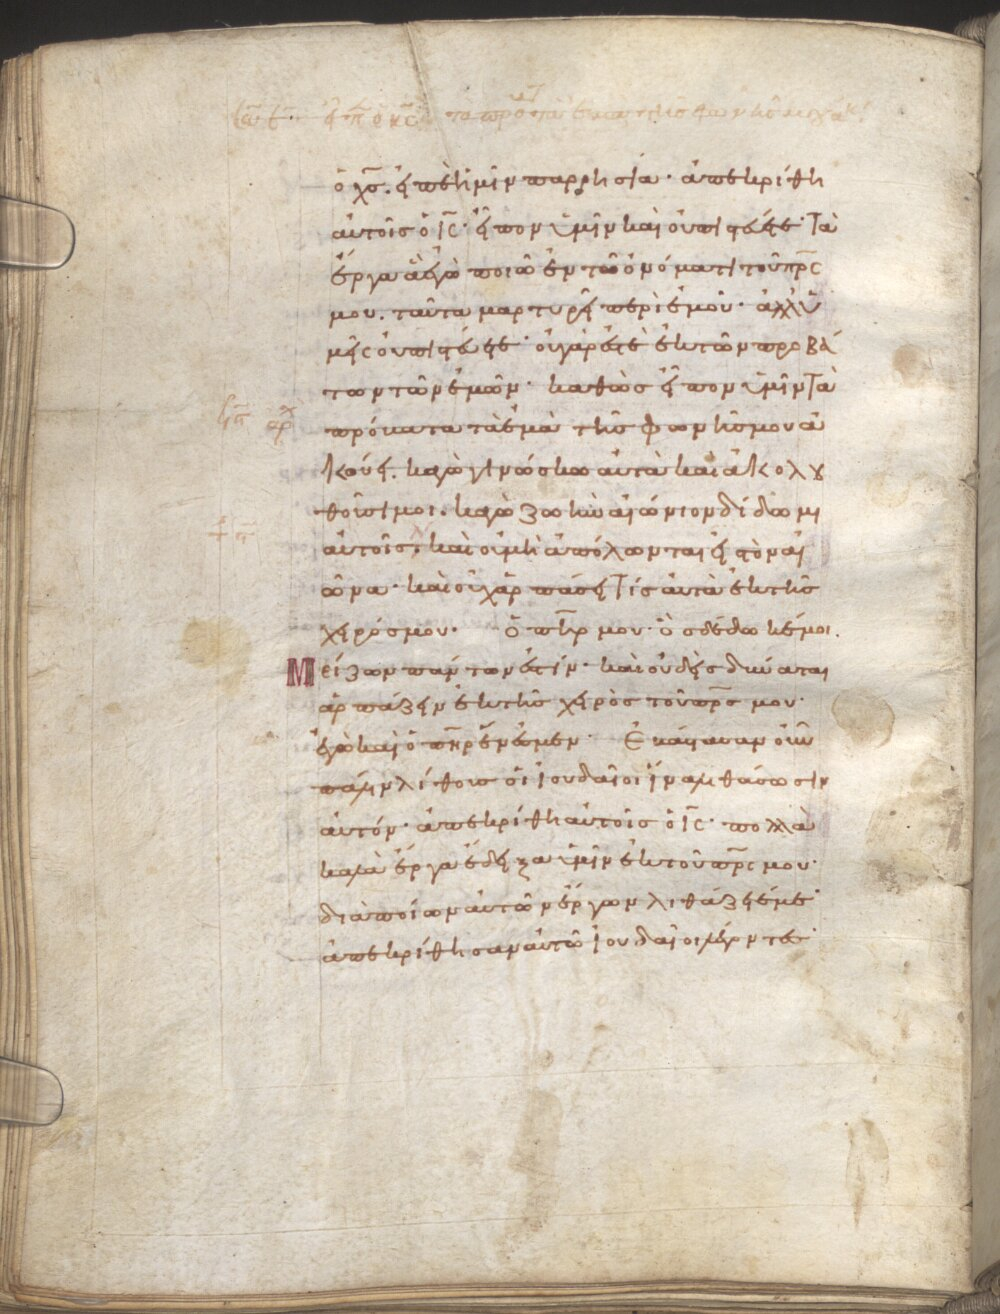 ὁ χς. εἰπὲ ἡμῖν παρρησία· ἀπεκρίθη
αὐτοῖς ὁ ις· εἶπον ὑμῖν καὶ οὐ πιστεύετε· τὰ
ἔργα ἃ ἐγὼ ποιῶ ἐν τῶ ὀνόματι τοῦ πρς
μου. ταῦτα μαρτυρεῖ περὶ ἐμοῦ· ἀλλ ὑ
μεῖς οὐ πιστεύετε· οὐ γάρ ἐστὲ ἐκ τῶν προβά
των τῶν ἐμῶν· καθὼς εἶπον ὑμῖν τὰ
πρόβατα τὰ ἐμὰ τῆς φωνῆς μου ἀ
κούει. καγὼ γινώσκω αὐτὰ καὶ ἀκολου
θοῦσι μοι. καγὼ ζωὴν αἰώνιον δίδωμι
αὐτοῖς. καὶ οὐ μὴ ἀπόλωνται εἰς τὸν αἰ
ῶνα· καὶ οὐχ ἁρπάσει τίς αὐτὰ ἐκ τῆς
χειρός μου· Ὁ πηρ μου ὃς δέδωκέ μοι.
Μείζων πάντων ἐστίν· καὶ οὐδεὶς δύναται
ἁρπάζειν ἐκ τῆς χειρὸς τοῦ πρς μου·
ἐγὼ καὶ ὁ πηρ ἕν ἐσμεν· Ἐβάστασαν οὖν
πάλιν λίθους οἱ ἰουδαῖοι ἵνα λιθάσωσιν
αὐτόν· ἀπεκρίθη αὐτοῖς ὁ ις· πολλὰ
καλὰ ἔργα ἔδειξα ὑμῖν ἐκ τοῦ πρς μου·
διὰ ποίων αὐτῶν ἔργον λιθάζετέ με·
ἀπεκρίθησαν αὐτῶ ἰουδαῖοι λέγοντες·